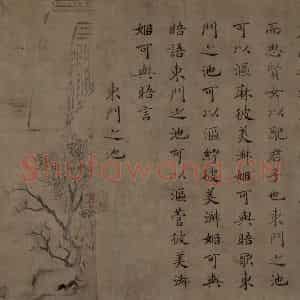 而思賢女以配君子也東門之池
可以漚麻彼美淑姬可與晤歌東
門之池可以漚紵彼美淑姬可與
晤語東門之池可以漚菅彼美淑
姬可與晤言
東門之池
Shufawang.cn